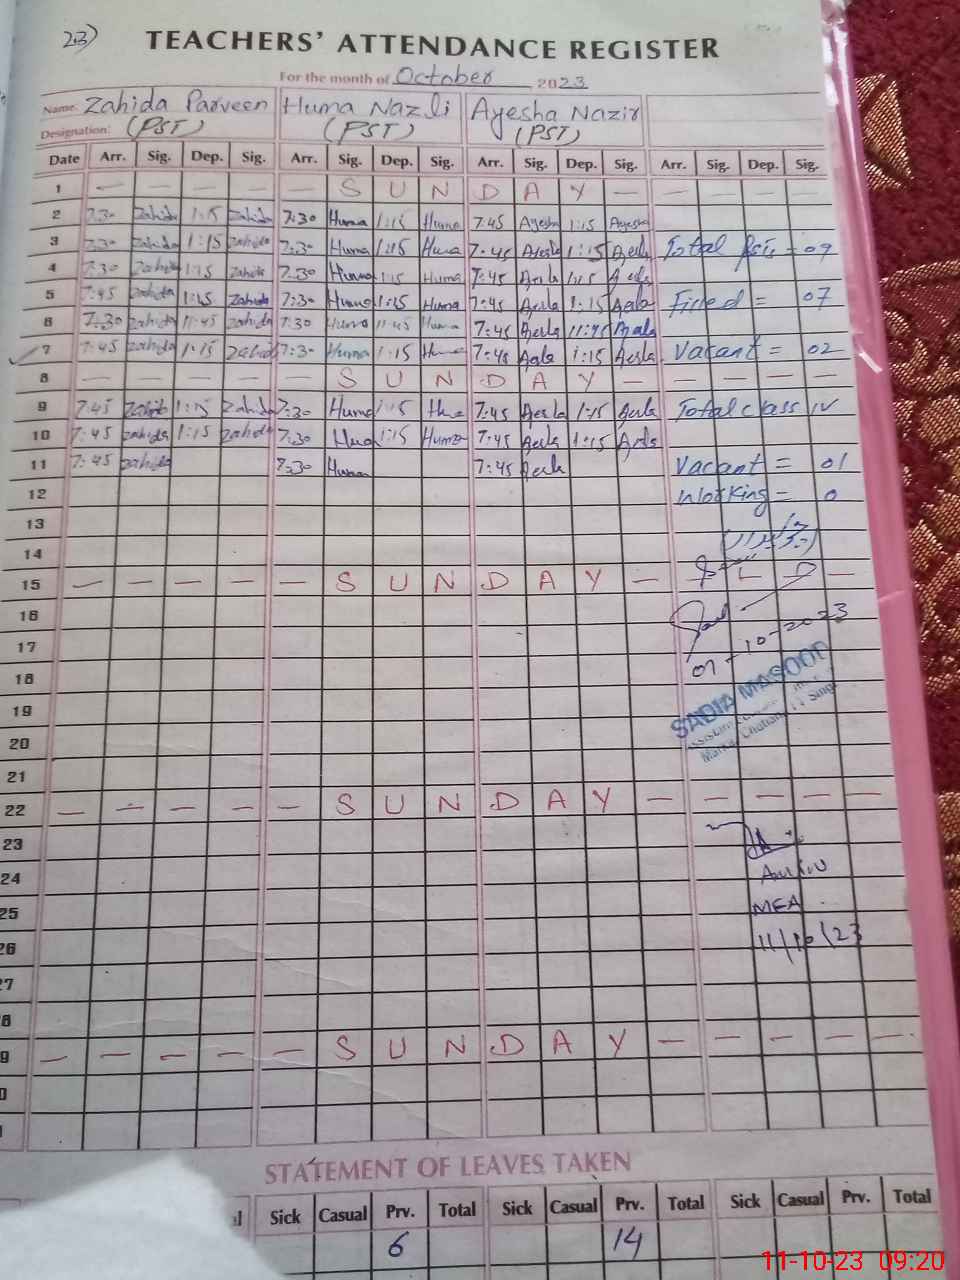 23)
TEACHERS' ATTENDANCE REGISTER
For the month of October 2023
Name: Zahida Parveen Huma Nazli Ayesha Nazir
Designation: (PST) (PST) (PST)
Date Arr. Sig. Dep. Sig. Arr. Sig. Dep. Sig. Arr. Sig. Dep. Sig. Arr. Sig. Dep. Sig.
1 — — — — — S U N D A Y — — — — —
2 7:30 Zahida 1:15 Zahida 7:30 Huma 1:15 Huma 7:45 Ayesha 1:15 Ayesha
3 7:30 Zahida 1:15 Zahida 7:30 Huma 1:15 Huma 7:45 1:15 Total = 09
4 7:30 Zahida 1:15 Zahida 7:30 Huma 1:15 Huma 7:45 1:15
5 7:45 Zahida 1:15 Zahida 7:30 Huma 1:15 Huma 7:45 1:15 Filled = 07
6 7:30 Zahida 11:45 Zahida 7:30 Huma 11:45 Huma 7:45 11:45
7 7:45 Zahida 1:15 Zahida 7:30 Huma 1:15 Huma 7:45 1:15 Vacant = 02
8 — — — — — S U N D A Y — — — — —
9 7:45 Zahida 1:15 Zahida 7:30 Huma 1:15 Huma 7:45 1:15 Total class IV
10 7:45 Zahida 1:15 Zahida 7:30 Huma 1:15 Huma 7:45 1:15
11 7:45 Zahida 7:30 Huma 7:45 Vacant = 01
12 Working = 0
13
14
15 — — — — — S U N D A Y — —
16
17 07-10-2023
18
19 SADIA MASOOD
20
21
22 — — — — — S U N D A Y — — — — —
23
24
25 MEA
26 11/10/23
27
8
9 — — — — — S U N D A Y — — — — —
0
STATEMENT OF LEAVES TAKEN
Sick Casual Prv. Total Sick Casual Prv. Total Sick Casual Prv. Total
6 14
11-10-23 09:20